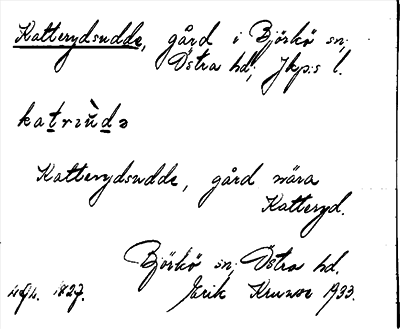 Katterydsudde, gård i Björkö sn;
Östra hd; Jkp:s l.
katriùdə
Katterydsudde, gård nära
Katteryd.
Björkö sn; Östra hd.
1827. Erik 1933.